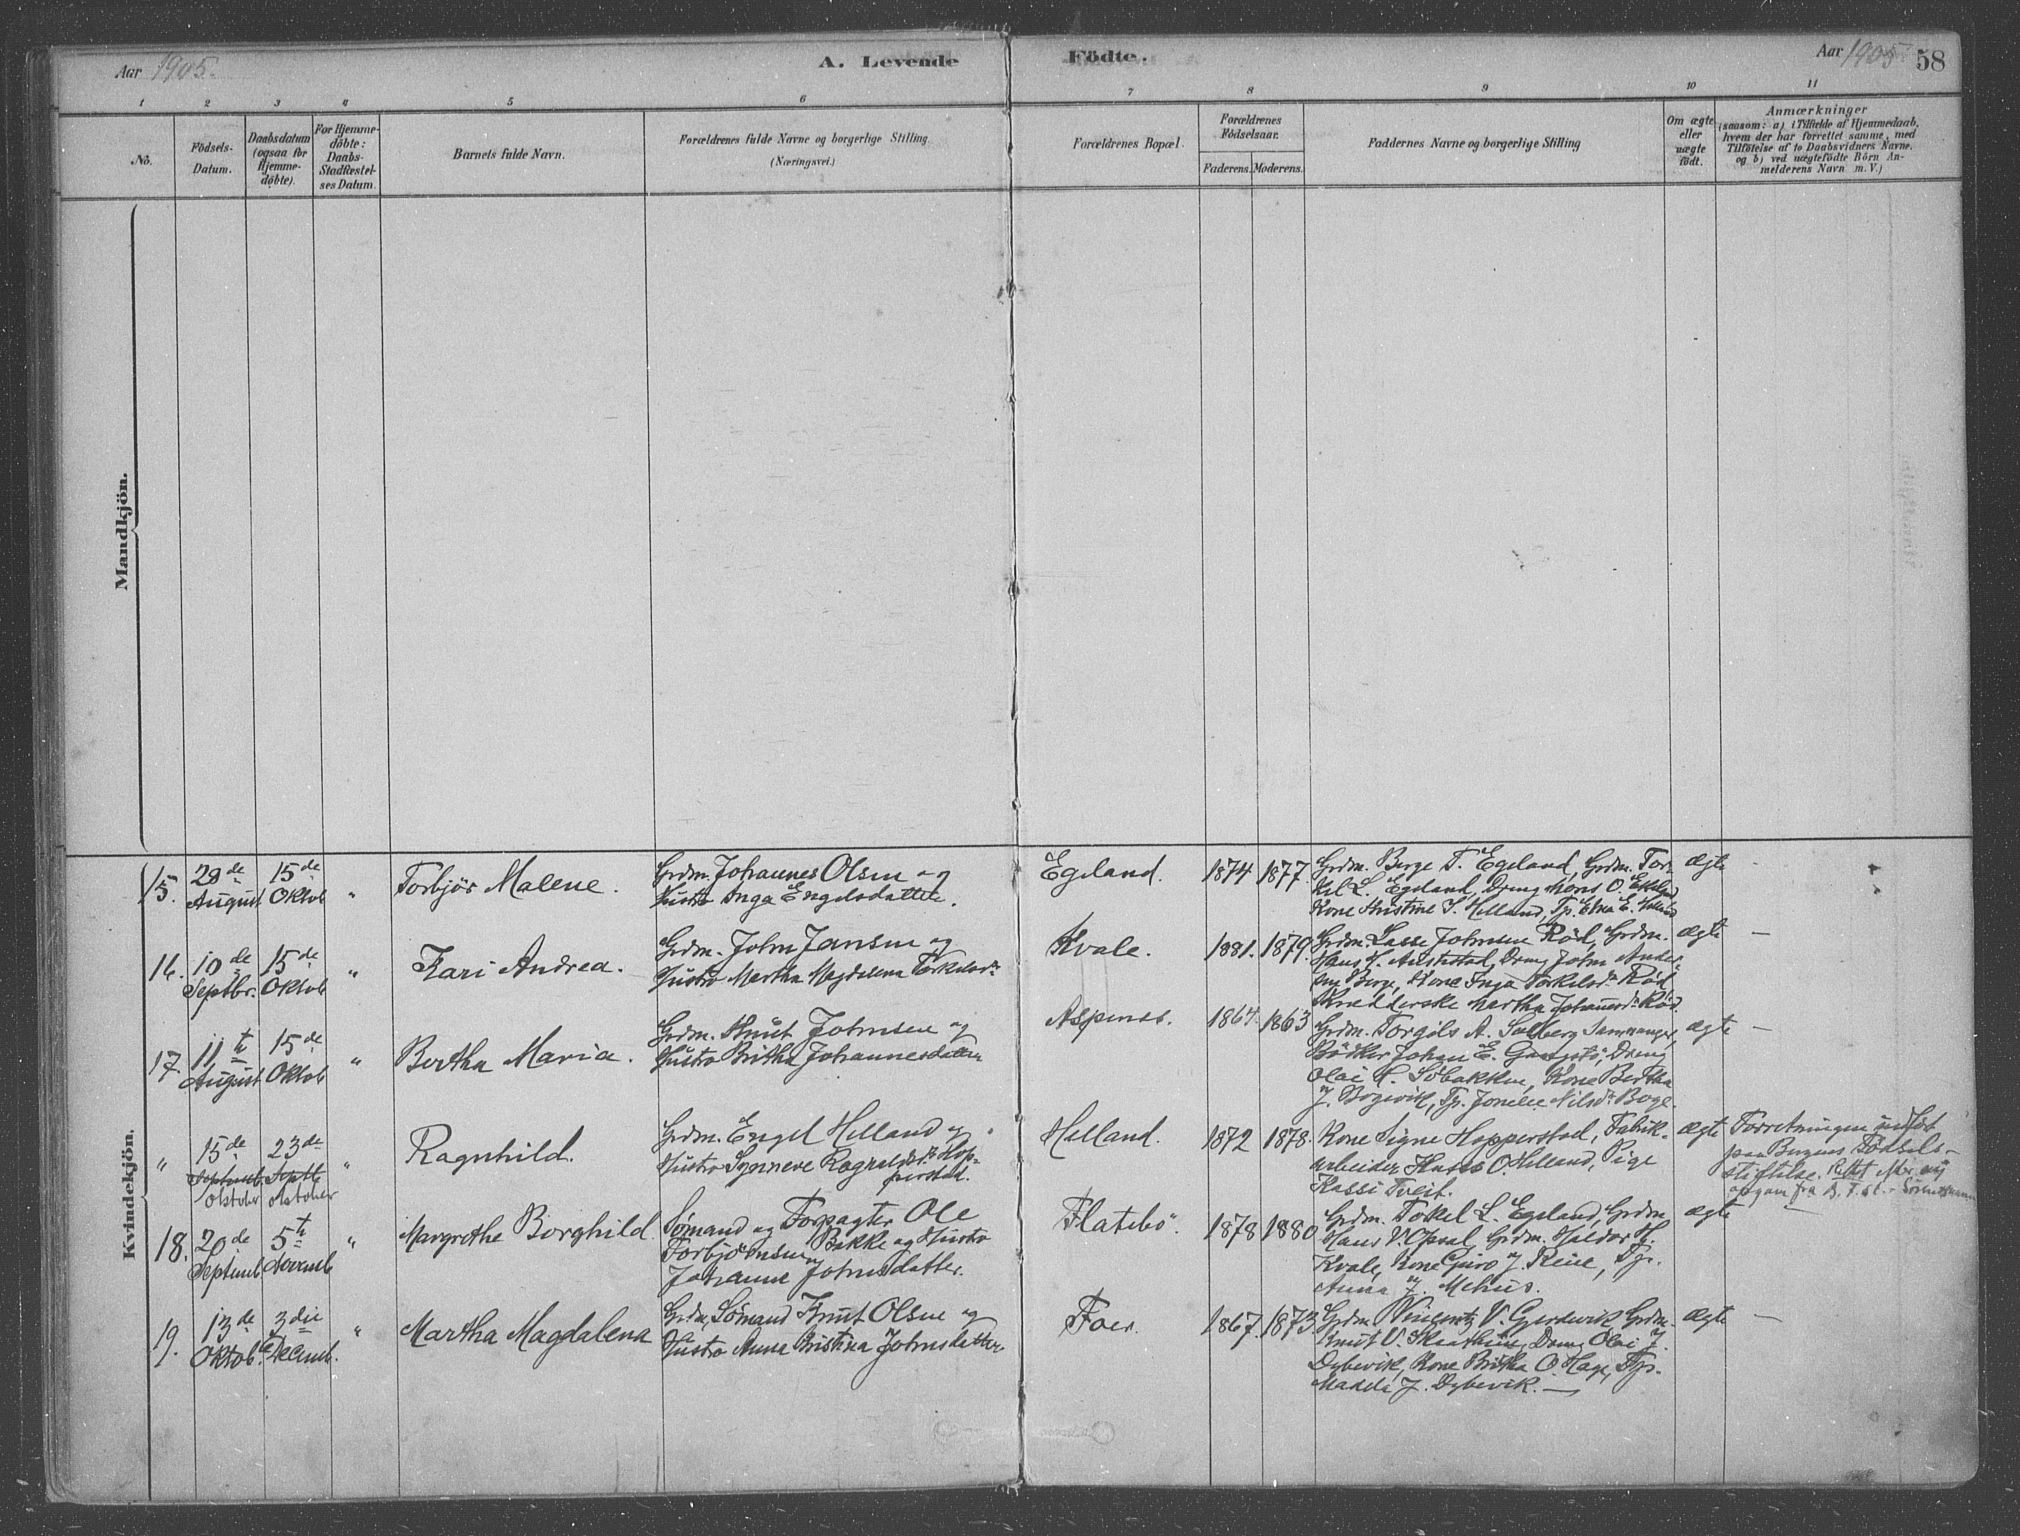 Aar 1905. A. Levende Födte. Aar 1905 58
1 2 3 4 5 6 7 8 9 10 11
No.
Födsels-
Datum.
Daabsdatum
(ogsaa for
Hjemme-
døbte).
For Hjemme-
døbte:
Daabs-
Stadfæstel-
ses Datum.
Barnets fulde Navn.
Forældrenes fulde Navne og borgerlige Stilling.
(Næringsvei.)
Forældrenes Bopæl.
Forældrenes
Födselsaar.
Faderens. Moderens.
Faddernes Navne og borgerlige Stilling
Om ægte
eller
uægte
født.
Anmærkninger
(saasom: a) i Tilfælde af Hjemmedaab,
hvem der har forrettet samme, med
Tilføielse af to Daabsvidners Navne.
og b) ved uægtefødte Börn An-
melderens Navn m. V.)
Mandkjön.
Kvindekjön.
15. 28de August 15de Oktob " Torbjør Malene.
Grdm. Johannes Olsen og
Hustro Inga Engelsdatter.
Egeland. 1874 1877.
Grdm. Berge T. Egeland, Grdm. Tor-
kel L. Egeland, Dreng Mons O.
Kone Kristine S. Helland, Tp. Elna E. Helland
ægte
16. 10de Septbr. 15de Oktob " Kari Andrea.
Grdm. John Jansen og
Hustro Martha Magdalena Torkelsdr.
Kvale. 1881. 1879.
Grdm. Lasse Johnsen Röd, Grdm.
Hans H. Austestad, Dreng John Ander-
sen Berge, Kone Inga Torkelsdr. Röd
Martha Johannesdr. Röd.
ægte —
17. 11te August 15de Oktob " Bertha Maria.
Grdm. Knut Johnsen og
Hustro Britha Johannesdatter
Aspenes. 1864. 1863
Grdm. Torgils A. Solberg Samnanger,
Bödker Johan E. Gangstö, Dreng
Olai H. Söbakken, Kone Bertha
J. Bogevik, Tp. Nilsdr. Boge.
ægte —
" 15de Septemb. Oktober 23de Septb Oktober " Ragnhild.
Grdm. Engel Helland og
Hustro Synneve Ragnalsdr. Hop-
perstad.
Helland. 1872 1878.
Kone Signe Hopperstad, Fabrik-
arbeider Hans O. Helland, Pige
Kassi Tveit.
ægte
Forretningen indført
paa Bergens Fødsels-
stiftelse. Rettet efter ny
opgave fra B. F. st.
18. 20de Septemb. 5te Novemb " Margrethe Borghild.
Sømand og Forpagter Ole
Torbjörnsen Bakke og Hustro
Johanne Johnsdatter.
Flatebö. 1878 1880
Grdm. Tokel L. Egeland, Grdm.
Hans V. Opsal, Grdm. Haldor H.
Kvale, Kone Guro J. Reine, Tp.
Anna J. Mehus.
ægte
19. 13de Oktob. 3die Decemb. " Martha Magdalena
Grdm, Sømand Knut Olsen og
Hustro Anna Kristina Johnsdatter.
Foer. 1867. 1873.
Grdm. Vincentz V. Gjerdevik, Grdm.
Knut V. Dreng Olai J.
Dybevik, Kone Britha O. Hage, Tp.
J. Dybevik. —
ægte —